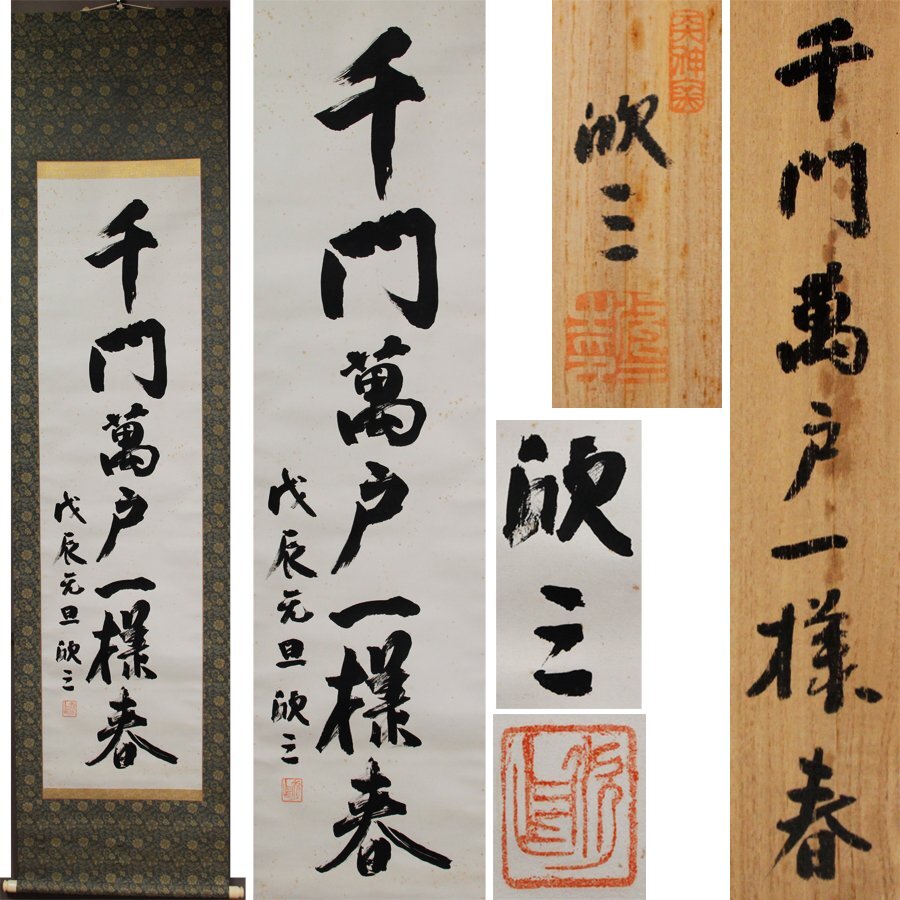 千門萬戸一樣春
戊辰元旦 欣三
千門萬戸一樣春
戊辰元旦 欣三
欣三
欣三
千門萬戸一様春